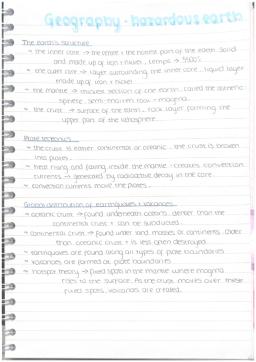 Geography - hazardous earth
The earth's structure
→ the inner core → the centre + the hottest part of the earth. Solid
and made up of iron + nickel, temps → 5500°c
→ the outer core → layer surrounding the inner core. liquid layer
made up of iron + nickel.
→ the mantle → thickest section of the earth. called the
semi-molten rock + magma.
→ the crust → surface of the earth. rock layer forming the
upper part of the lithosphere.
Plate tectonics
→ the crust is either continental or oceanic. the crust is broken
into plates.
→ heat rising and falling inside the mantle creates convection
currents → generated by radioactive decay in the core.
→ convection currents move the plates.
Global distribution of earthquakes + volcanoes
→ oceanic crust → found underneath oceans. denser than the
continental crust + can be subducted.
→ continental crust → found under land masses or continents. Older
than oceanic crust + is less often destroyed.
→ earthquakes are found along all types of plate boundaries
→ volcanoes are formed at plate boundaries
→ hotspot theory → fixed spots in the mantle where magma
rises to the surface. As the crust moves over these
fixed spots, volcanoes are created.